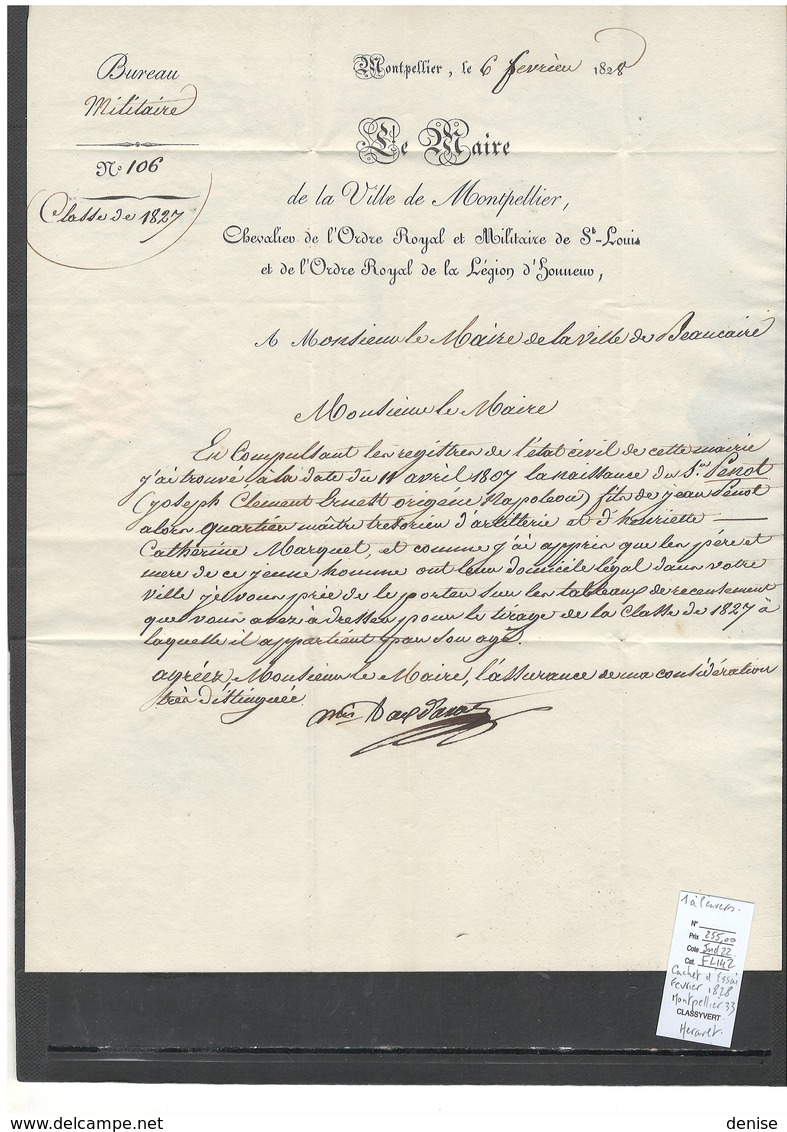 Bureau
Militaire
N° 106
Classe de 1827
Montpellier, le 6 fevrier 1828
Le Maire
de la Ville de Montpellier,
Chevalier de l'Ordre Royal et Militaire de St-Louis
et de l'Ordre Royal de la Légion d'honneur,
A Monsieur le Maire de la ville de Beaucaire
Monsieur le Maire
En Compulsant les registres de l'état civil de cette mairie
j'ai trouvé à la date du 11 avril 1807 la naissance du Sr Penot
(joseph Clement Ernest origène Napoleon) fils de jean Penot
alors quartier maitre tresorier d'artillerie et d'henriette
Catherine Marquet, et comme j'ai appris que les père et
mere de ce jeune homme ont leur domicile légal dans votre
ville je vous prie de le porter sur les tableaux de recensement
que vous avez à dresser pour le tirage de la Classe de 1827 à
laquelle il appartient par son age.
agréez, Monsieur le Maire, l'assurance de ma considération
très distinguée.
1 à l'envers.
N°
Prix 255,00
Cote Ind 22
Cat. FL142
Cachet d'Essai
Fevrier 1828
Montpellier 33
CLASSYVERT
Herault.
denise